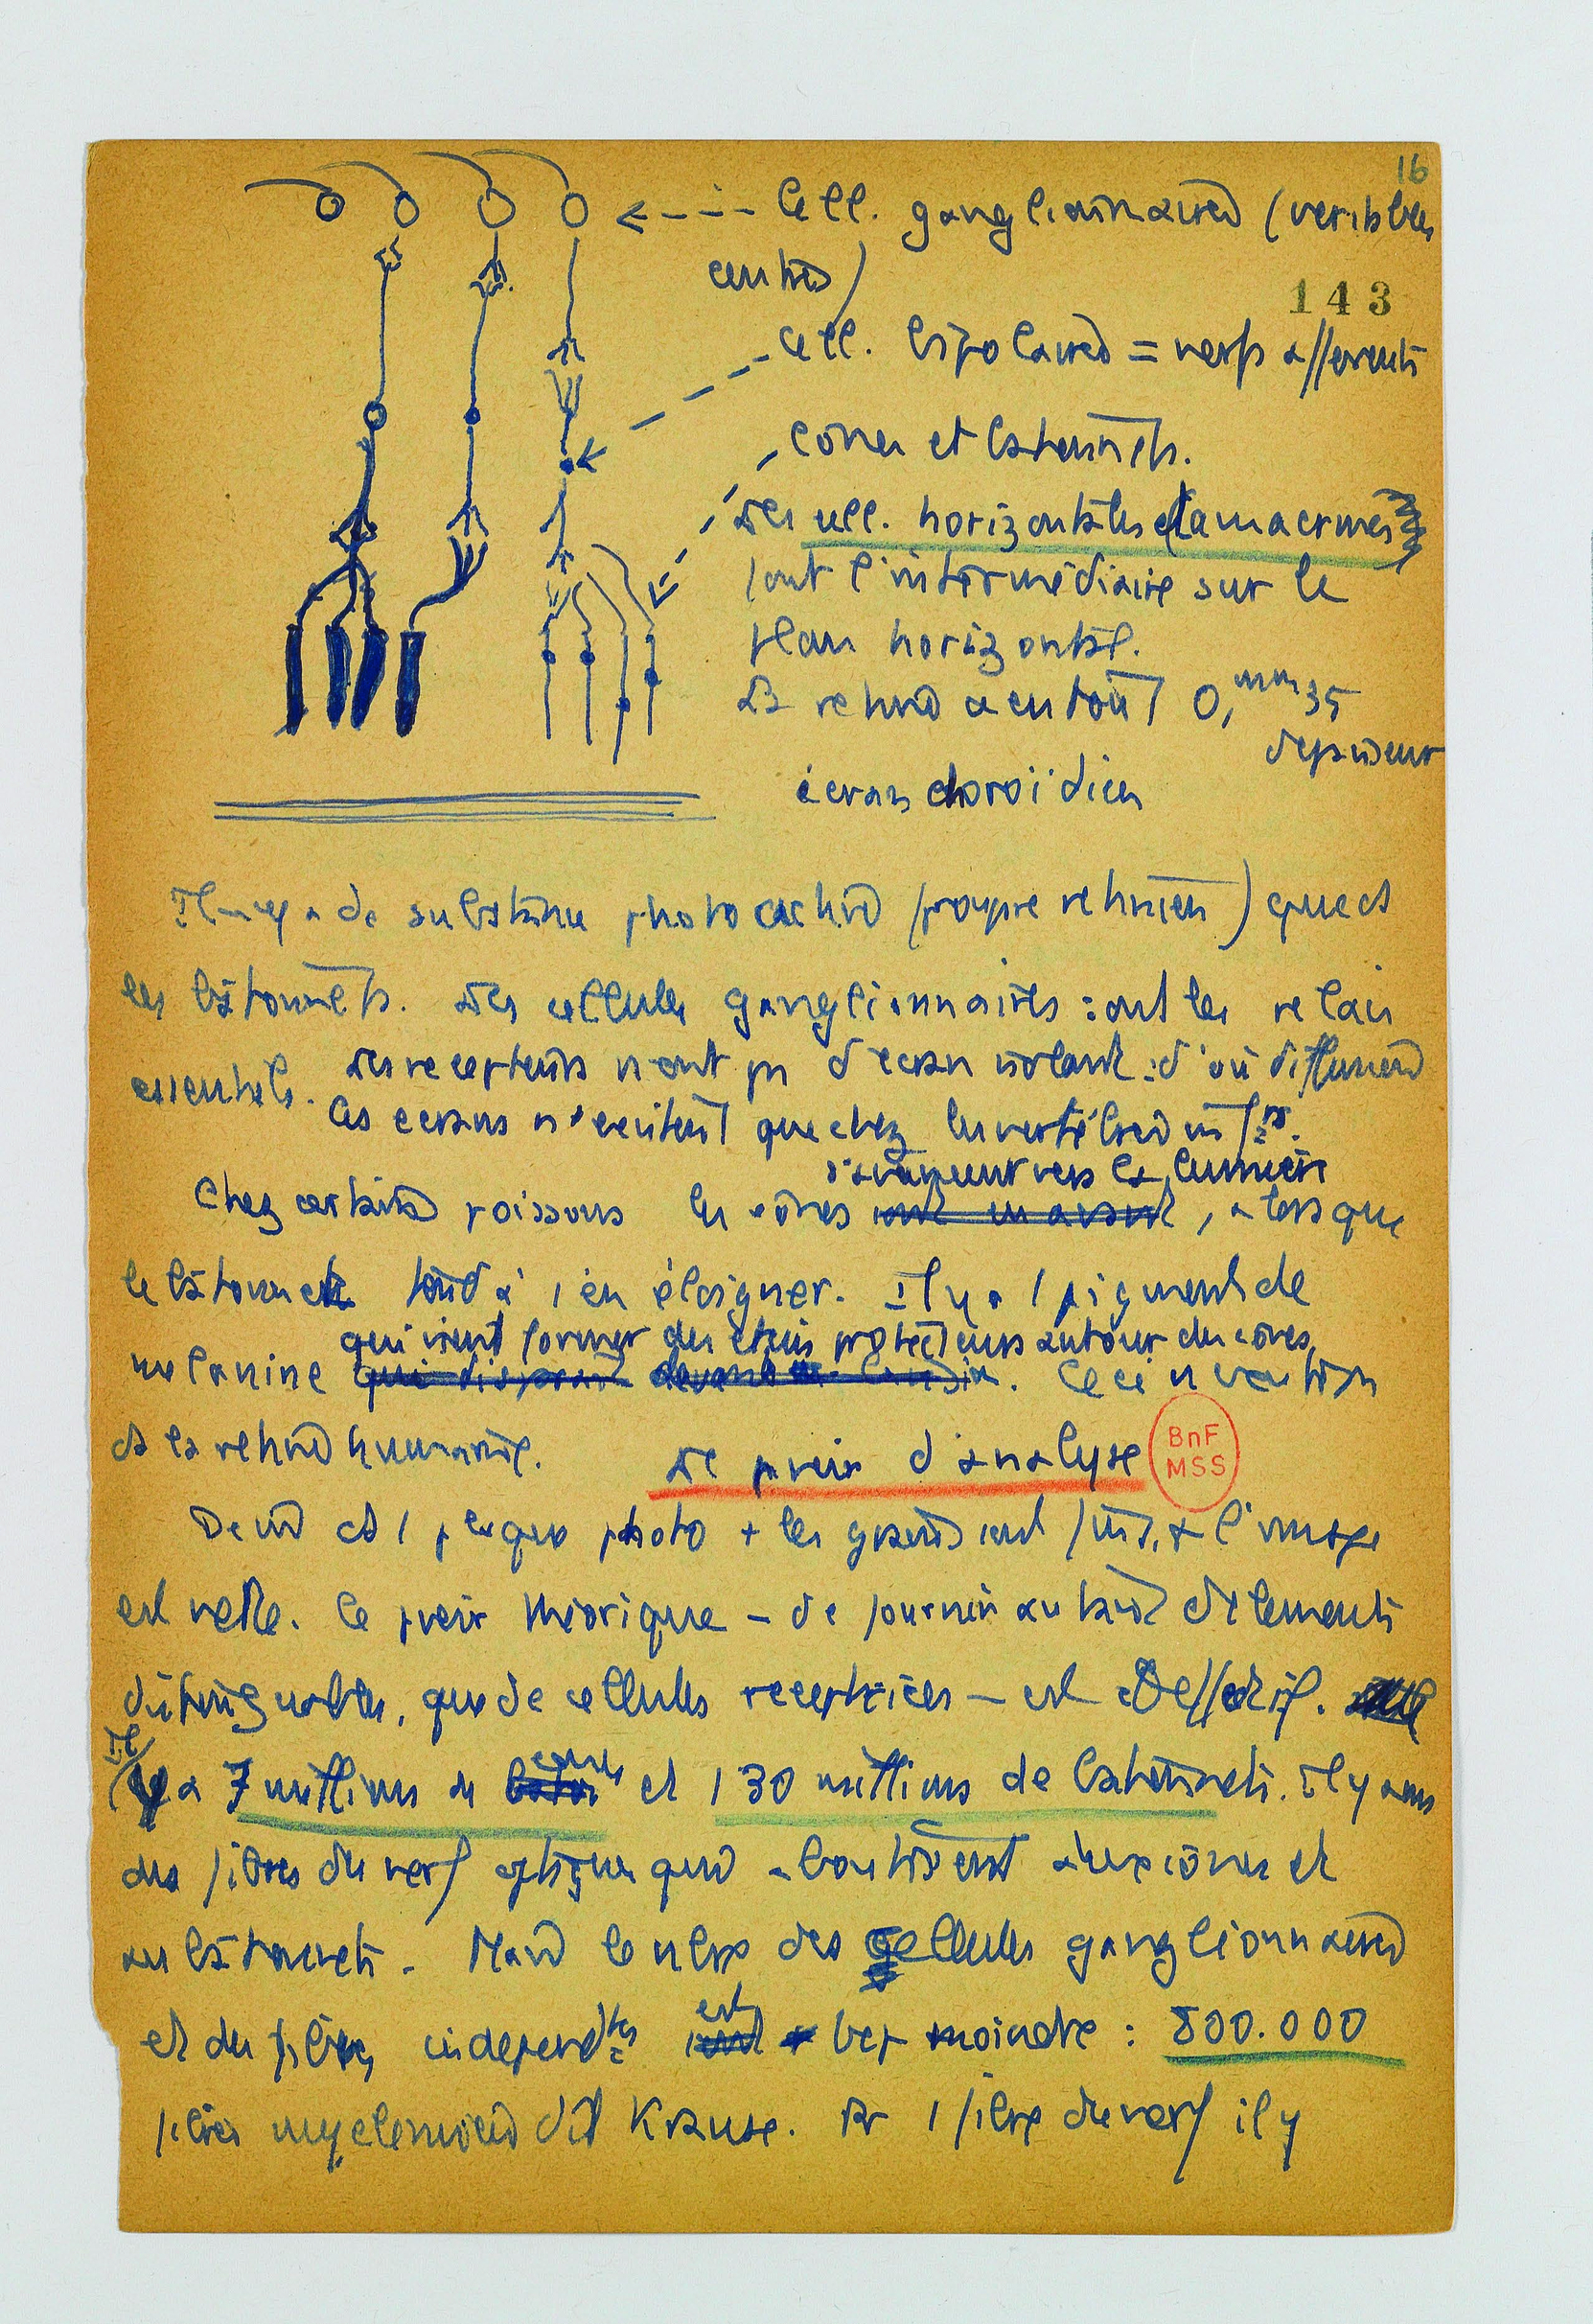 16
Cell. ganglionnaires (véritables
centres)
143
Cell. bipolaires = nerfs afférents
cones et batonnets.
Les cell. horizontales et amacrines
font l'intermédiaire sur le
plan horizontal.
La retine a en tout 0,mm35
d'epaisseur
écran choroïdien
Il n'y a de substance photo active (pourpre retinien) que ds
les bâtonnets. Les cellules ganglionnaires sont les relais
essentiels. Les recepteurs n'ont pas d'ecran isolant : d'où diffusion
Ces ecrans n'existent que chez les invertébrés infrs.
s'avancent vers la lumière
Chez certains poissons les cônes sont en avant, alors que
le bâtonnet tend à s'en éloigner. Il y a 1 pigment de
qui vient former des etuis protecteurs autour des cônes
melanine qui disparait devant la lumière. Ceci n'existe
ds la retine humaine. Le pouvoir d'analyse
BnF
MSS
ds 1 plaque photo + les grains sont fins, + l'image
est nette. Ce pouvoir théorique – de fournir autant d'elements
distinguables, que de cellules receptrices – est
Il
y a 7 millions de cones et 130 millions de batonnets. Il y a
des fibres du nerf optique qui aboutissent aux cônes et
aux bâtonnets. Mais le nbre des cellules ganglionnaires
est
et des fibres independtes sont bcp moindre : 800.000
fibres myelinisées dit Krause. Pr 1 fibre du nerf il y